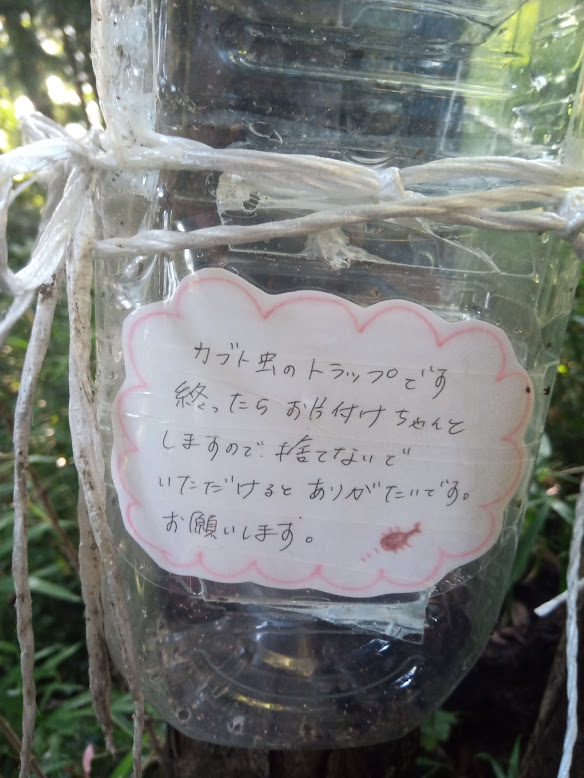 カブト虫のトラップです
終ったらお片付けちゃんと
しますので、捨てないで
いただけるとありがたいです。
お願いします。